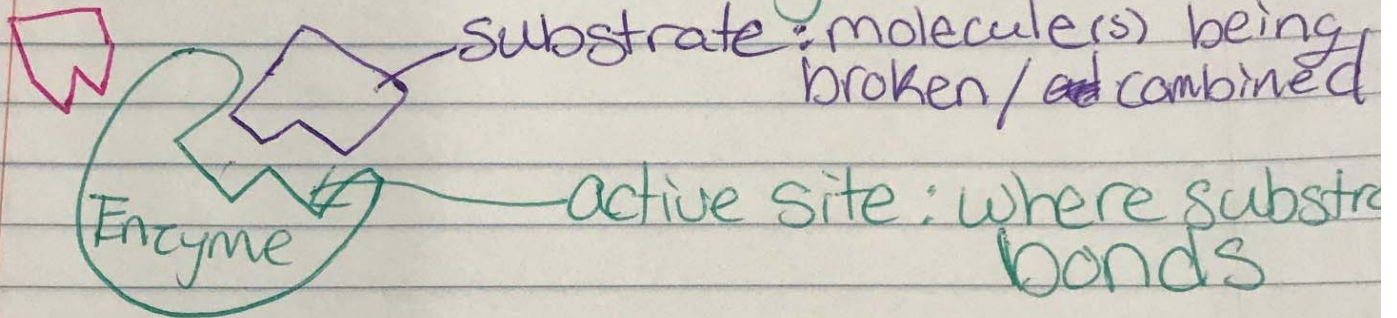 substrate: molecule(s) being
broken/ combined
active site: where substra
Enzyme
bonds